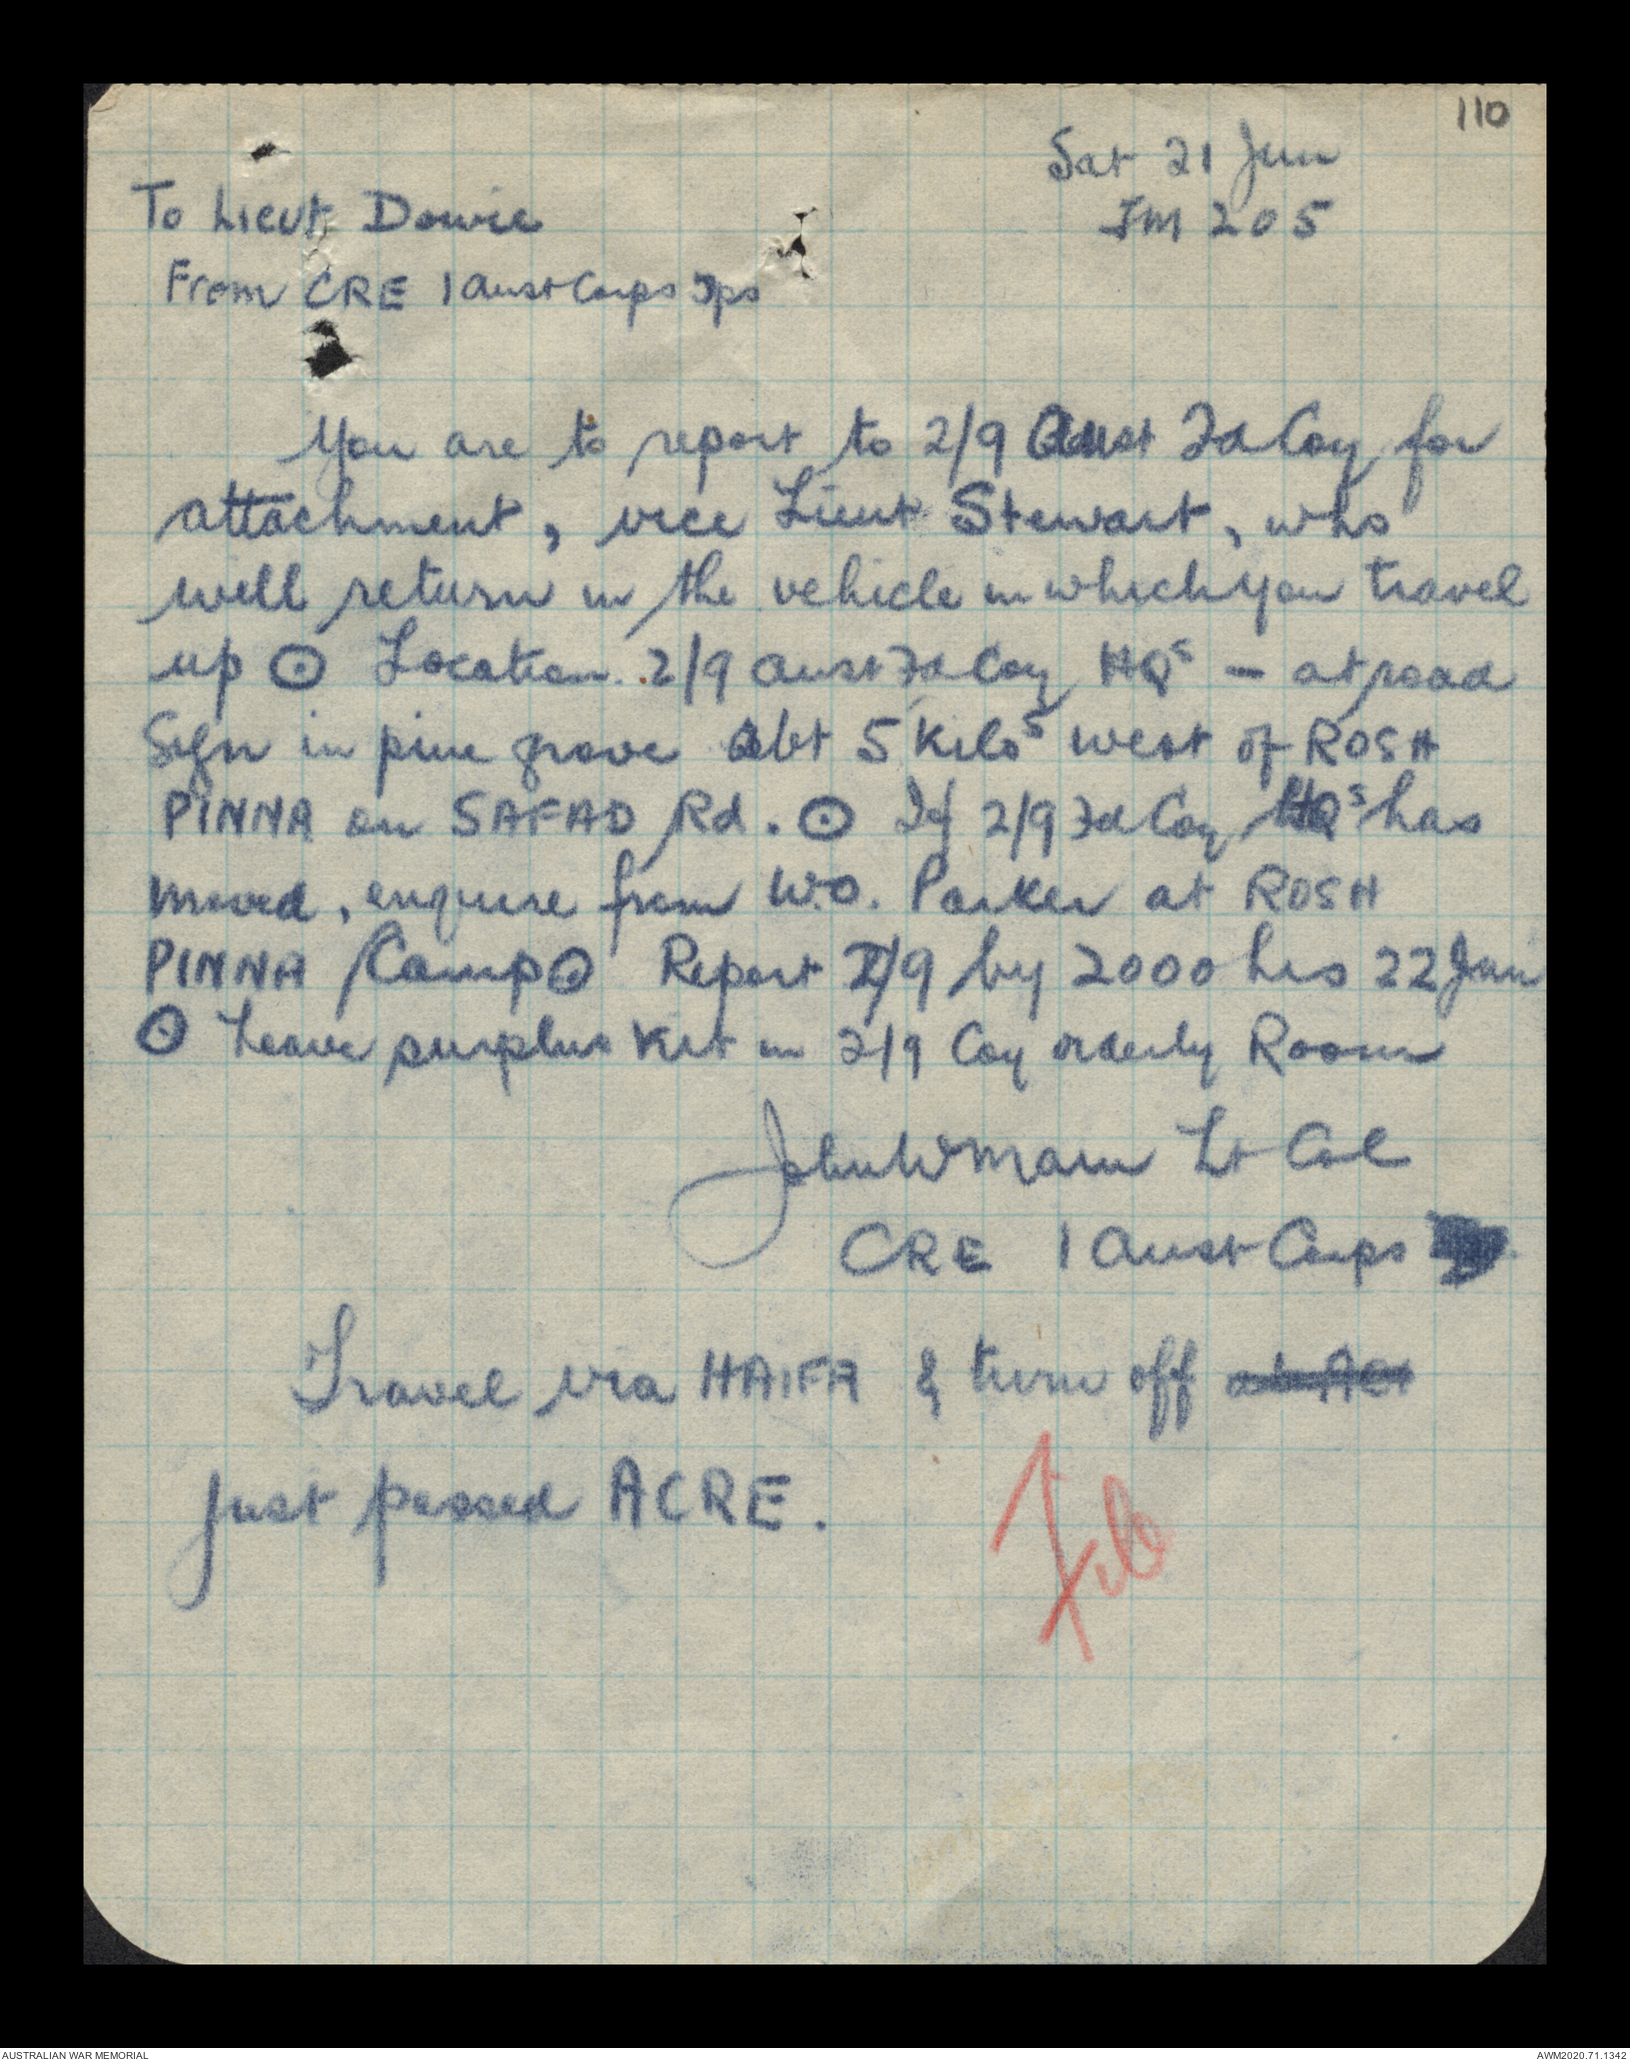 110
Sat 21 Jun
JM 205
To Lieut Dowie
From CRE 1 Aust Corps Tps
You are to report to 2/9 Aust Fd Coy for
attachment, vice Lieut Stewart, who
will return in the vehicle in which you travel
up ⊙ Location 2/9 Aust Fd Coy HQs - at road
sign in pine grove abt 5 Kilos west of ROSH
PINNA on SAFAD Rd. ⊙ If 2/9 Fd Coy HQs has
moved, enquire from W.O. Parker at ROSH
PINNA Camp ⊙ Report 2/9 by 2000 hrs 22 Jun
⊙ Leave surplus Kit in 2/9 Coy orderly Room
John W Mann Lt Col
CRE 1 Aust Corps
Travel via HAIFA & turn off
just passed ACRE.
File
AUSTRALIAN WAR MEMORIAL
AWM2020.71.1342